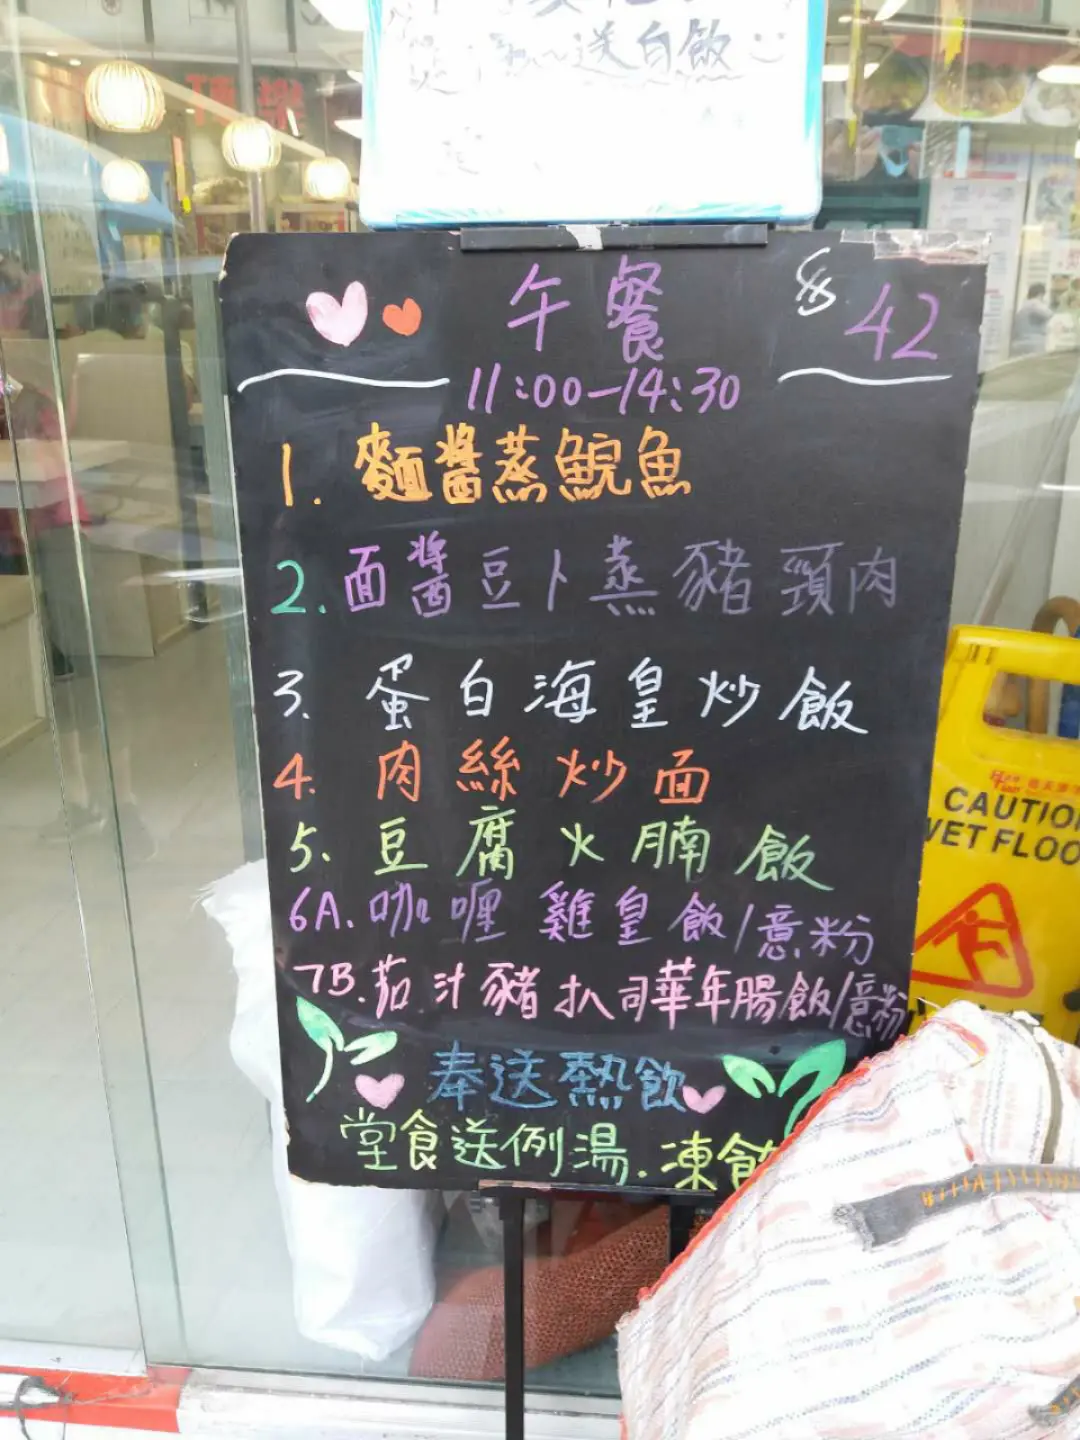 送白飯
午餐
$42
11:00-14:30
1. 麵醬蒸鯇魚
2. 面醬豆卜蒸豬頸肉
3. 蛋白海皇炒飯
4. 肉絲炒面
5. 豆腐火腩飯
6A. 咖喱雞皇飯/意粉
7B. 茄汁豬扒司華年腸飯/意粉
奉送熱飲
堂食送例湯.凍飲
CAUTION
WET FLOO